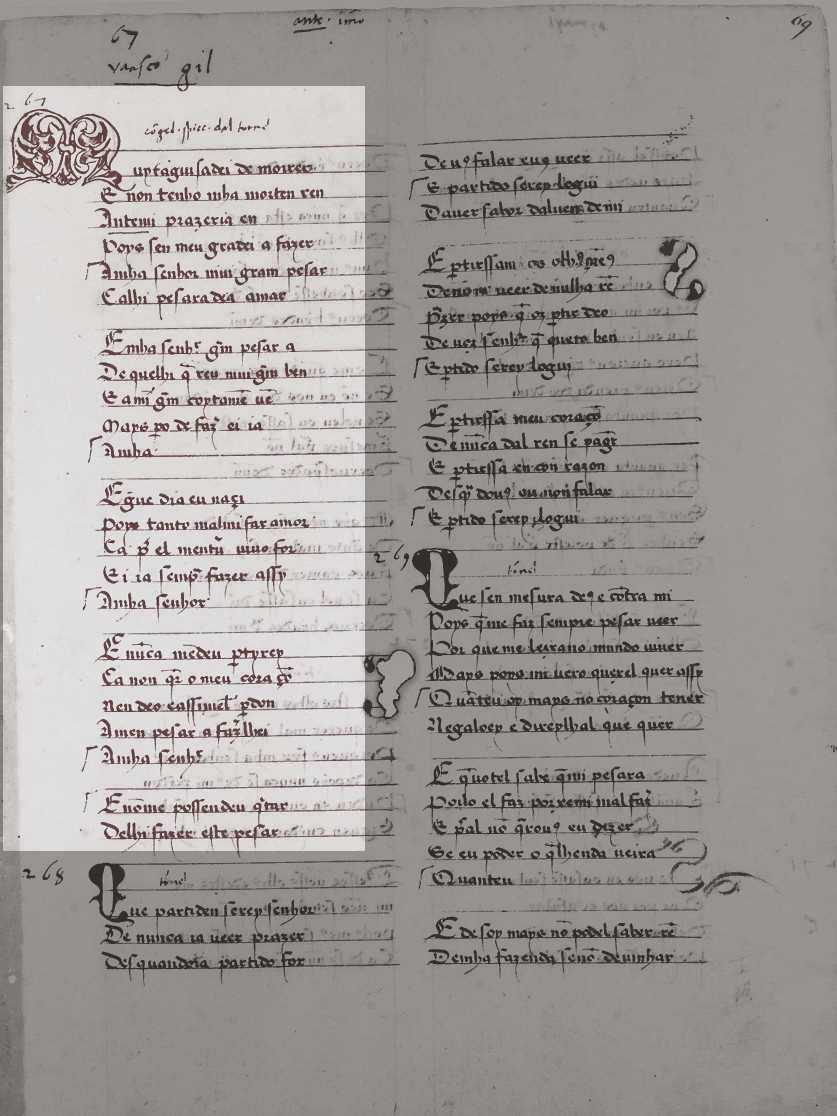 ante · imo
69
67
vaasco gil
267
uytaguisadei de moirer
E non tenho mha morten ren
Antemi prazeria en
Poys sen meu gradei a fazer
Amha senhor mui gram pesar
E alhi pesara dea amar
E mha senhr̄ gm̄ pesar a
De quelhi q̄ reu mui gm̄ ben
E a mi gm̄ coytamē uē
Mays po de faz̄ ei ia
Amha
E gue dia eu naçi
Poys tanto malmi faz amor
Ca p̄ el mentu vivo for
E i ia semp̄ fazer assy
Amha senhor
E nūca medeu partyrey
Ca non qr̄ o meu coraçō
Nen deo eassimel p̄don
Amen pesar a faz̄lhei
Amha senhr̄
E nōme possendeu q̄tar
Delhi fazer este pesar
268
tençō
Que partiden serey senhor
De nunca ia ueer prazer
Desquandoia partido for
De uꝯ falar euꝯ ueer
E partido serey logui
Dauer sabor dalueꝛ demi
E ptirssam os olhꝯ meꝯ
De nō ueer de nulha rē
Pzer poys q̄ os ptir deo
De uez senhr̄ q̄ queto ben
E ptido serey logui
E ptirssa meu coraçō
De nūca dal ren se pagr̄
E ptirssa en con razon
Desq̄ douꝯ ou non falar
E ptido serey logui
269
Que sen mesura deꝯ e cōtra mi
Poys q̄me faz sempre pesar ueer
Por que me leixano mundo uiuer
Mays poys mi uero querel quer assy
Quāteu oy mays no coraçon tener
Negaloey e direylhal que quer
E q̄uotel sabe q̄mi pesara
Porlo el faz porremi mal faz̄
E p̄al nō q̄rouꝯ eu dizer
Se eu poder o q̄lhenda ueira
Quanteu
E de soy mays nō podel saber rē
Demha fazenda senō deuinhar